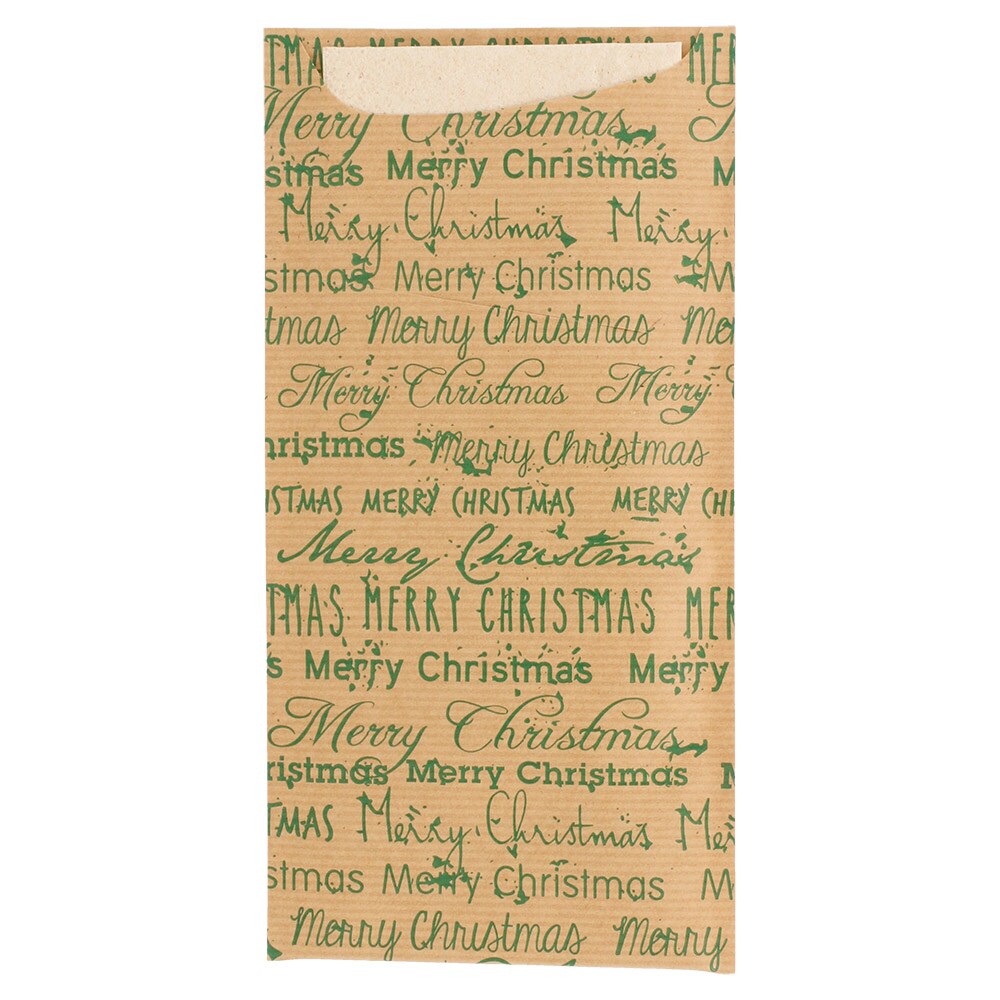 TMAS MERRY CHRISTMAS MER
Merry Christmas
stmas Merry Christmas M
Merry Christmas Merry
stmas Merry Christmas M
tmas Merry Christmas Me
Merry Christmas Merry
hristmas Merry Christmas
ISTMAS MERRY CHRISTMAS MERRY CHR
Merry Christmas
TMAS MERRY CHRISTMAS MER
s Merry Christmas Merry
Merry Christmas
ristmas Merry Christmas M
TMAS Merry Christmas Me
stmas Merry Christmas M
Merry Christmas Merry